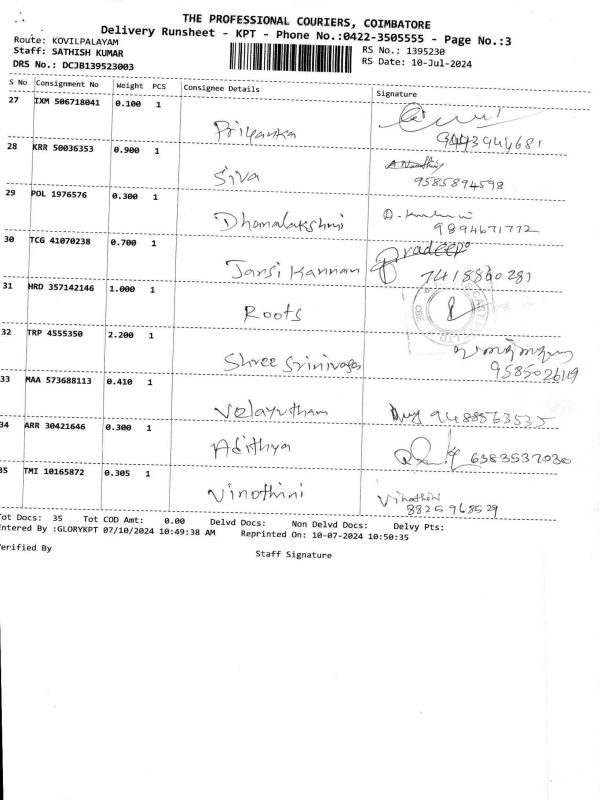 THE PROFESSIONAL COURIERS, COIMBATORE
Delivery Runsheet - KPT - Phone No.:0422-3505555 - Page No.:3
Route: KOVILPALAYAM
Staff: SATHISH KUMAR
DRS No.: DCJB139523003
RS No.: 1395230
RS Date: 10-Jul-2024
S No Consignment No Weight PCS Consignee Details Signature
27 IXM 506718041 0.100 1 Priyanka
28 KRR 50036353 0.900 1 Siva 9585894598
29 POL 1976576 0.300 1 Dhanalakshmi 9894671772
30 TCG 41070238 0.700 1 Jansi Kannan Pradeep 7418860281
31 HRD 357142146 1.000 1 Roots
32 TRP 4555350 2.200 1 Shree Srinivasa 9585026119
33 MAA 573688113 0.410 1 Velayutham 9488563535
34 ARR 30421646 0.300 1 Adithya 6383537030
35 TMI 10165872 0.305 1 Vinothini Vinothini 8825968529
Tot Docs: 35 Tot COD Amt: 0.00 Delvd Docs: Non Delvd Docs: Delvy Pts:
Entered By :GLORYKPT 07/10/2024 10:49:38 AM Reprinted On: 10-07-2024 10:50:35
Verified By Staff Signature